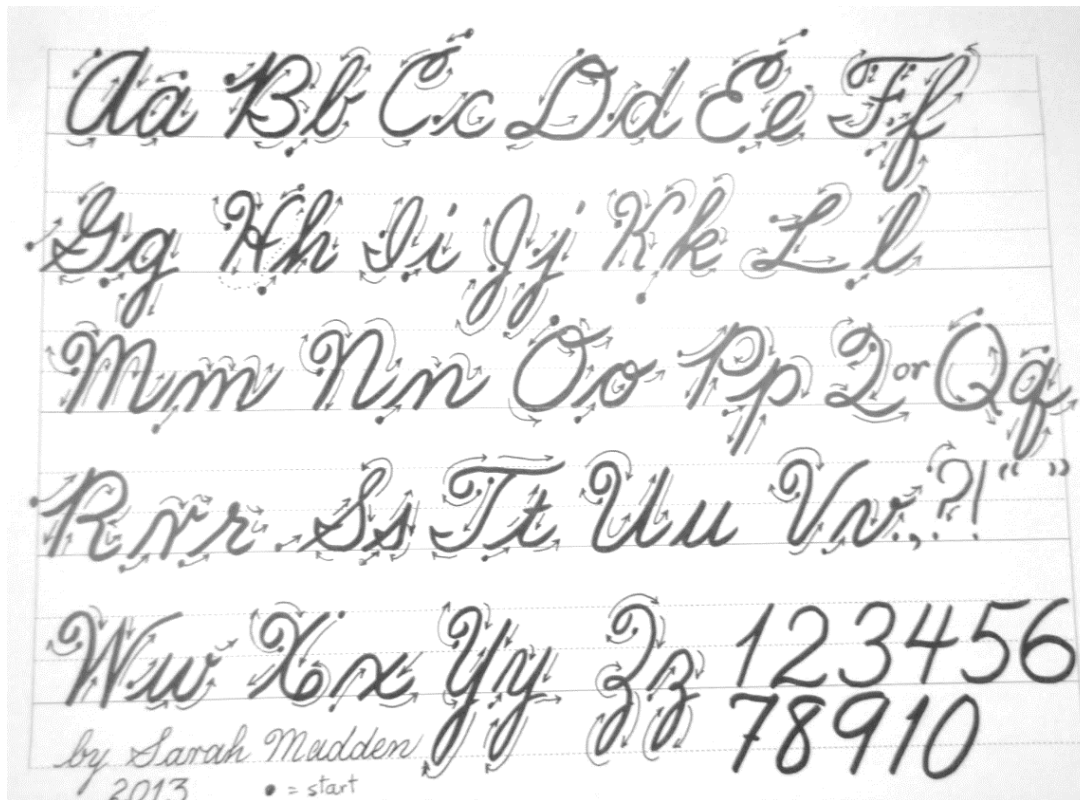 Aa Bb Cc Dd Ee Ff
Gg Hh Ii Jj Kk Ll
Mm Nn Oo Pp Q or Qq
Rrr Ss Tt Uu Vv.,.?! “ ”
Ww Xx Yy Zz 123456
78910
by Sarah Madden
2013 • = start